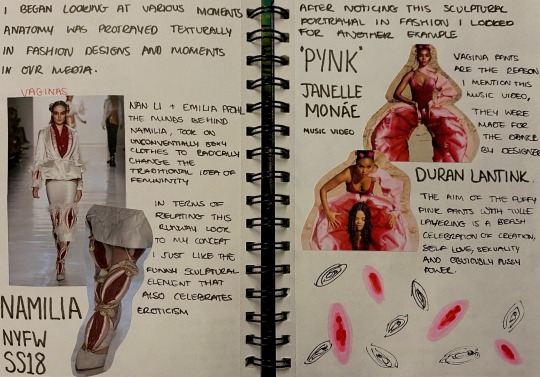 I BEGAN LOOKING AT VARIOUS MOMENTS
ANATOMY WAS PROTRAYED TEXTURALLY
IN FASHION DESIGNS AND MOMENTS
IN OUR MEDIA.
VAGINAS
NAN LI + EMILIA PFOHL
THE MINDS BEHIND
NAMILIA, TOOK ON
UNCONVENTIALLY BOXY
CLOTHES TO RADICALLY
CHANGE THE
TRADITIONAL IDEA OF
FEMININITY
IN TERMS OF
RELATING THIS
RUNWAY LOOK
TO MY CONCEPT
I JUST LIKE THE
FUNNY SCULPTURAL
ELEMENT THAT
ALSO CELEBRATES
EROTICISM
NAMILIA
NYFW
SS18
AFTER NOTICING THIS SCULPTURAL
PORTRAYAL IN FASHION I LOOKED
FOR ANOTHER EXAMPLE
'PYNK'
JANELLE
MONÁE
MUSIC VIDEO
VAGINA PANTS
ARE THE REASON
I MENTION THIS
MUSIC VIDEO,
THEY WERE
MADE FOR
THE DANCE
BY DESIGNER
DURAN LANTINK.
THE AIM OF THE PUFFY
PINK PANTS WITH TULLE
LAYERING IS A BRASH
CELEBRATION OF CREATION,
SELF LOVE, SEXUALITY
AND OBVIOUSLY PUSSY
POWER.